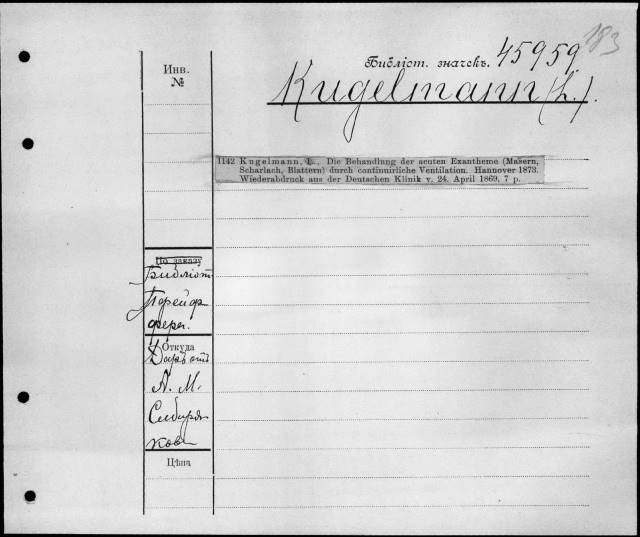 183
Библіот. значекъ. 45959
Инв.
№
Kugelmann (L.).
1142 Kugelmann, L., Die Behandlung der acuten Exantheme (Masern,
Scharlach, Blattern) durch continuirliche Ventilation. Hannover 1873.
Wiederabdruck aus der Deutschen Klinik v. 24. April 1869. 7 p.
По заказу
Библіот.
Порейф
ферг.
Откуда
Даръ отъ
А. М.
Сибиря-
кова
Цѣна